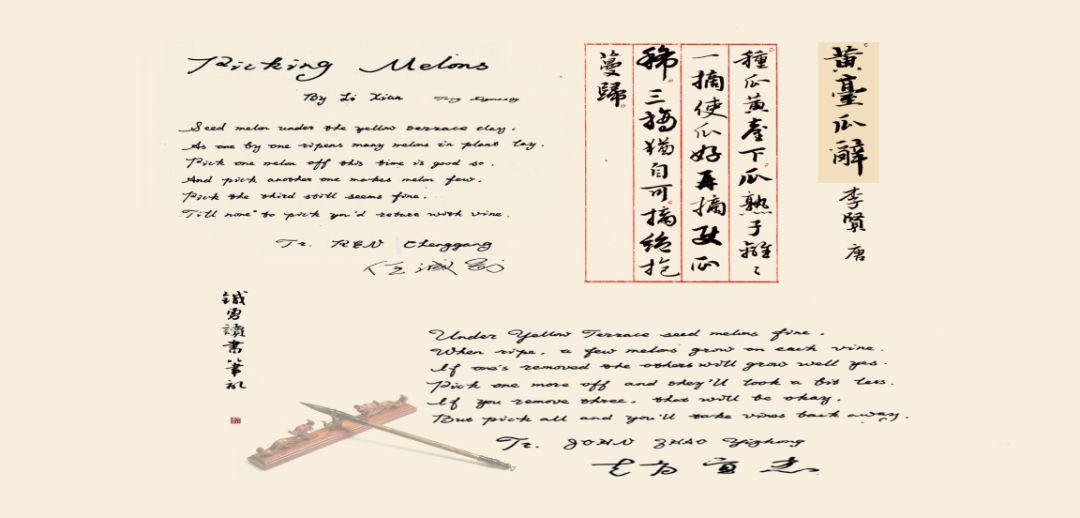 Picking Melons
By Li Xian Tang Dynasty
Seed melon under the yellow terrace clay,
As one by one ripens many melons in plant lay.
Pick one melon off this time is good so.
And pick another one makes melon few.
Pick the third still seems fine.
Till none to pick you'd return with vine.
Tr. REN Chenggang
任誠剛
黄臺瓜辭
李賢 唐
種瓜黄臺下瓜熟子離〻
一摘使瓜好再摘瓜
稀三摘猶自可摘絕抱
蔓歸
讀書筆記
Under Yellow Terrace seed melons fine.
When ripe, a few melons grow on each vine.
If one's removed the others will grow well yes.
Pick one more off and they'll look a bit less.
If you remove three, that will be okay,
But pick all and you'll take vines back away.
Tr. JOHN ZHAO Yizhong